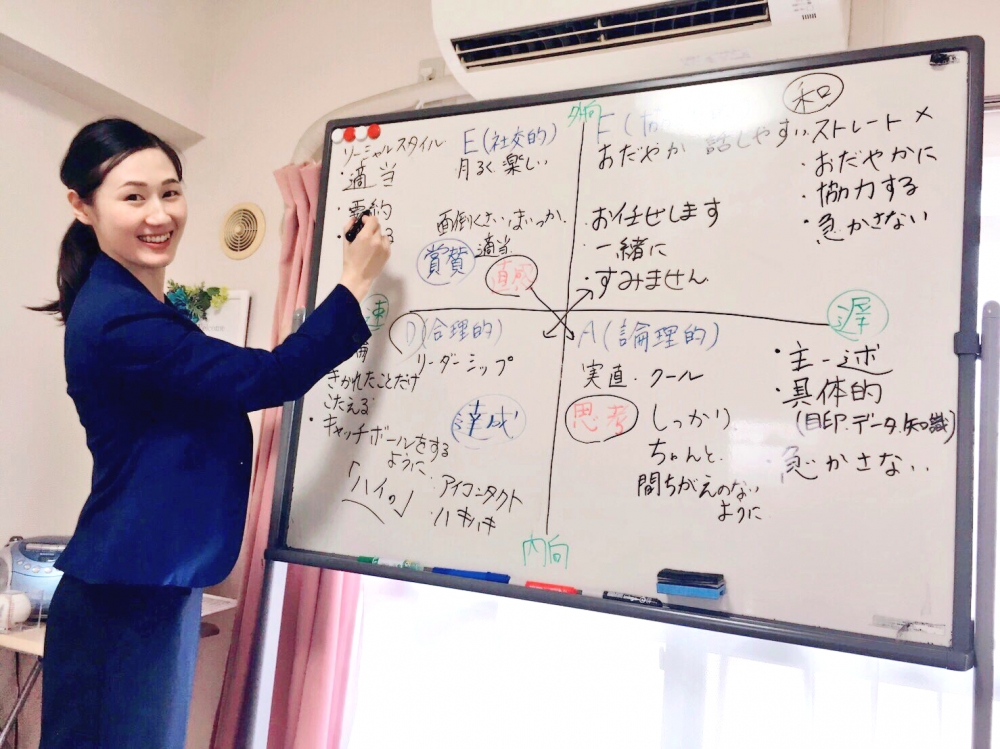 外向
ソーシャルスタイル
E(社交的)
明るく楽しい
・適当
・要約
る
面倒くさい、まいっか、
適当
賞賛
直感
E(協
おだやか 話しやすい
和
ストレート×
・おだやかに
・協力する
・急かさない
・お任せします
・一緒に
・すみません
速
D(合理的)
リーダーシップ
きかれたことだけ
こたえる
・キャッチボールをする
ように
達成
「ハイッ」
・アイコンタクト
・ハキハキ
A(論理的)
実直・クール
思考
しっかり、
ちゃんと、
間ちがえのない
ように
遅
・主一述
・具体的
(目印、データ、知識)
・急かさない
内向